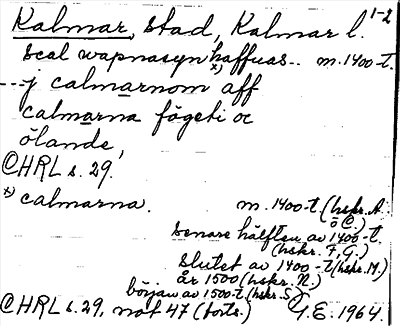 Kalmar, stad, Kalmar l. 1-2
Scal wapnasyn haffuas.. m. 1400-t.
x)
---j calmarnom aff
calmarna fögeti oc
ölande,
CHRL s. 29.
x) calmarna. m. 1400-t. (hskr. A.
o C.)
senare hälften av 1400-t.
(hskr. F, G.)
slutet av 1400-t (hskr. M.)
år 1500 (hskr. N.)
början av 1500-t. (hskr. S.)
CHRL s. 29, not 47 (forts.) G.E. 1964.